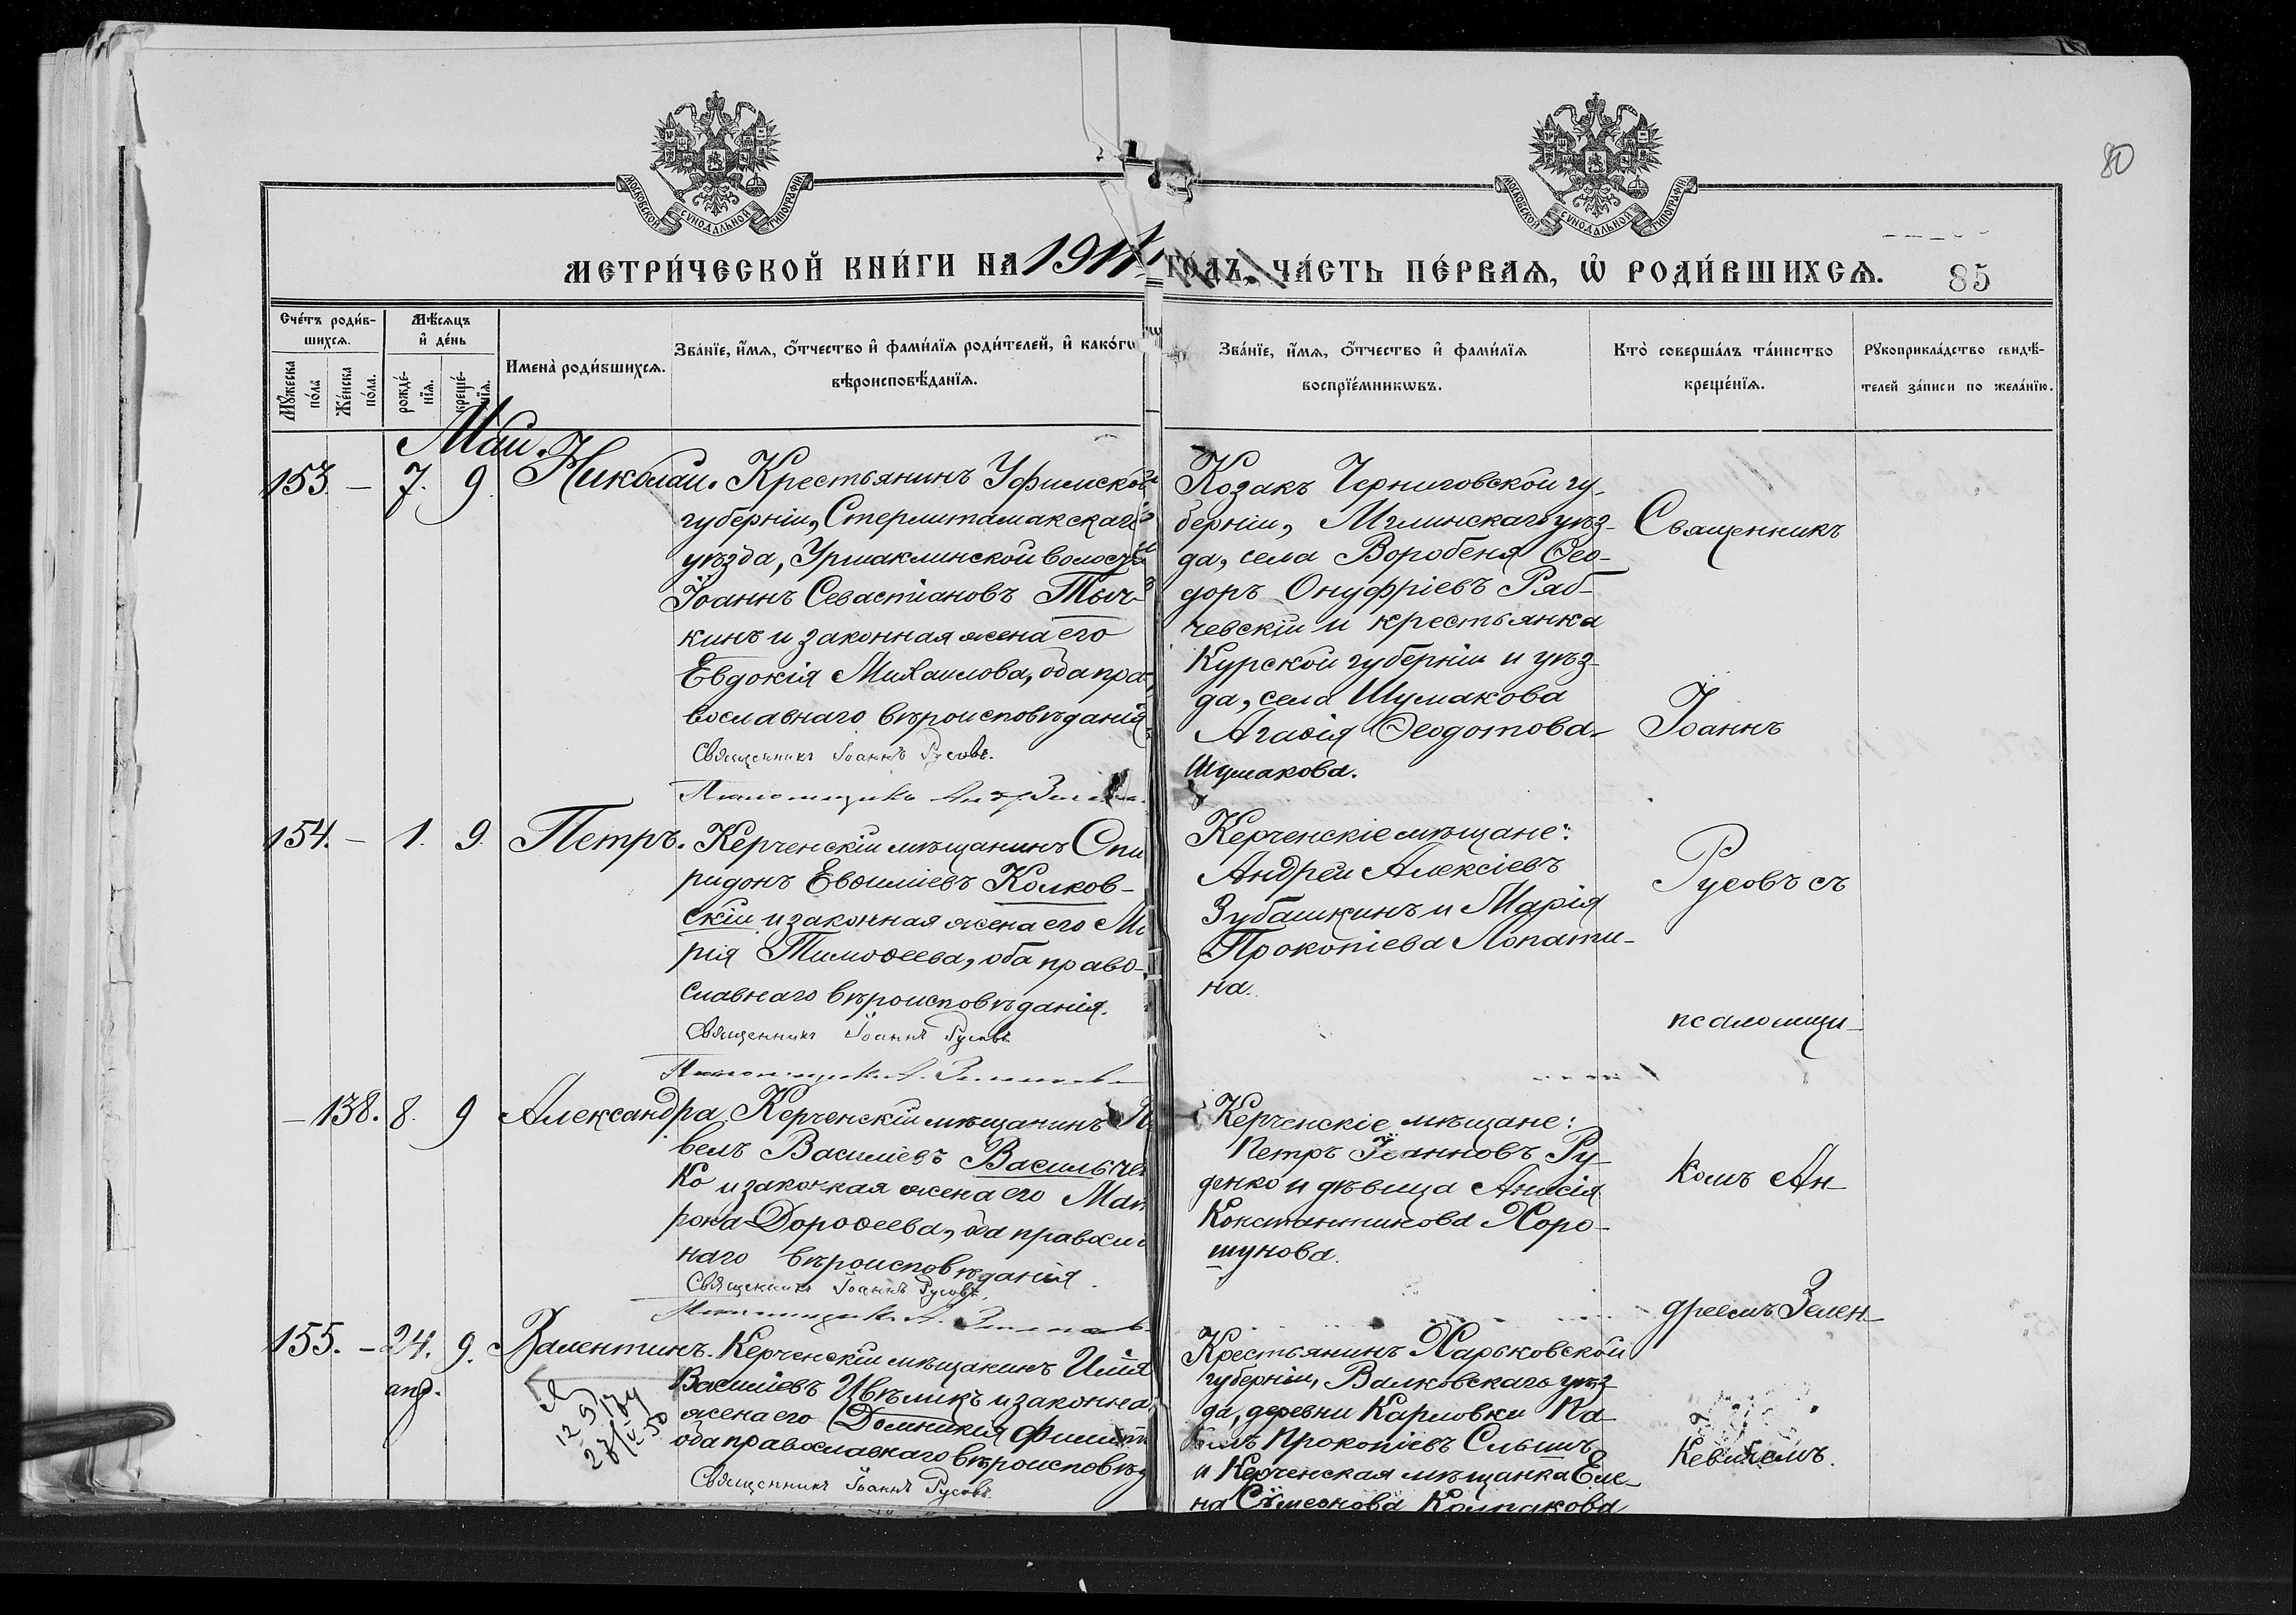 80
МОСКОВСКОЙ СѴНОДАЛЬНОЙ ТИПОГРАФІИ
МОСКОВСКОЙ СѴНОДАЛЬНОЙ ТИПОГРАФІИ
МЕТРИ́ЧЕСКОЙ КНИ́ГИ НА 1911 ГО́ДЪ, ЧА́СТЬ ПЕ́РВАЯ, Ѡ҆ РОДИ́ВШИХСѦ.
85
Сче́тъ роди́в-
шихсѧ.
Мꙋ́жеска
по́ла
Же́нска
по́ла.
Мѣ́сѧцъ
и҆ де́нь
рожде́-
нїѧ.
креще́-
нїѧ.
Имена̀ роди́вшихсѧ.
Зва́нїе, и҆́мѧ, ѻ҆́тчество и҆ фами́лїѧ роди́телей, и҆ како́гѡ
вѣроисповѣ́данїѧ.
Зва́нїе, и҆́мѧ, ѻ҆́тчество и҆ фами́лїѧ
воспрїе́мникѡвъ.
Кто̀ соверша́лъ та́инство
креще́нїѧ.
Рꙋкоприкла́дство свидѣ́-
телей за́писи по жела́нїю.
Май.
153. – 7. 9. Николай. Крестьянинъ Уфимской
губерніи, Стерлитамакскаго
уѣзда, Урмаклинской волости
Іоаннъ Севастіановъ Тыч-
кинъ и законная жена его
Евдокія Михаилова, оба пра-
вославнаго вѣроисповѣданія
Священникъ Іоаннъ Русовъ.
Псаломщикъ
Козакъ Черниговской гу-
берніи, Мглинскаго уѣз-
да, села Воробеня Ѳео-
доръ Онуфріевъ Ряб-
чевскій и крестьянка
Курской губерніи и уѣз-
да, села Шумакова
Агаѳія Ѳеодотова
Шумакова.
154. – 1. 9. Петръ. Керченскій мѣщанинъ Спи
ридонъ Евѳиміевъ Колков-
скій и законная жена его Ма
рія Тимоѳеева, оба право-
славнаго вѣроисповѣданія.
Священникъ Іоаннъ Русовъ
Псаломщикъ А.
Керченскіе мѣщане:
Андрей Алексіевъ
Зубашкинъ и Марія
Прокопіева Лопати-
на.
– 138. 8. 9 Александра Керченскій мѣщанинъ Па
велъ Василіевъ Васильчен
ко и законная жена его Мат
рона Дороѳеева, оба правосла
наго вѣроисповѣданія.
Священникъ Іоаннъ Русовъ.
Псаломщикъ А.
Керченскіе мѣщане:
Петръ Іоанновъ Ру-
денко и дѣвица Анисія
Константинова Хоро-
шунова.
155. – 24. 9. Валентинъ. Керченскій мѣщанинъ Илія
апр.
Василіевъ Цвѣликъ и законна
жена его Домникія Филип
оба православнаго вѣроисповѣд
Священникъ Іоаннъ Русовъ
Крестьянинъ Харьковской
губерніи, Валковскаго уѣз
да, деревни Карловки Па
велъ Прокопіевъ
и Керченская мѣщанка Еле-
на Симеонова Колпакова
Священникъ
Іоаннъ
Русовъ съ
псаломщи-
комъ Ан-
дреемъ Зелен-
кевичемъ.